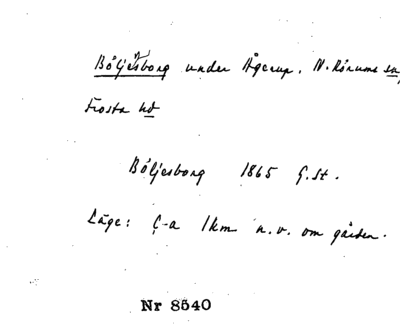 Böljesborg under Ågerup, N. Rörums sn,
Frosta hd
Böljesborg 1865 G.St.
Läge: C-a 1km n.v. om gården.
Nr 8540